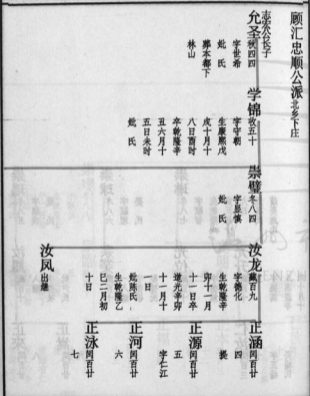 顾汇忠顺公派北乡下庄
志宏公长子
允圣 秋四四
字世希
妣 氏
葬本都下
林山
学锦 收五十
字守朝
生康熙戊
戌十月十
八日酉时
卒乾隆辛
丑六月十
五日未时
妣 氏
崇璧 冬八四
字显慎
妣 氏
汝龙 藏百九
字德化
生乾隆辛
卯十一月
十一日卒
道光辛卯
十一月十
一日
妣陈氏
生乾隆乙
巳二月初
十日
汝凤 出继
正涵 闰百廿
四
正源 闰百廿
五
字仁江
正河 闰百廿
六
正泳 闰百廿
七